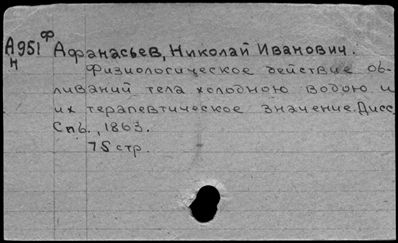 А951 Ф Афанасьев, Николай Иванович.
Н Физиологическое действие об-
ливаний тела холодною водою и
их терапевтическое значение. Дисс.
Спб., 1863.
75 стр.